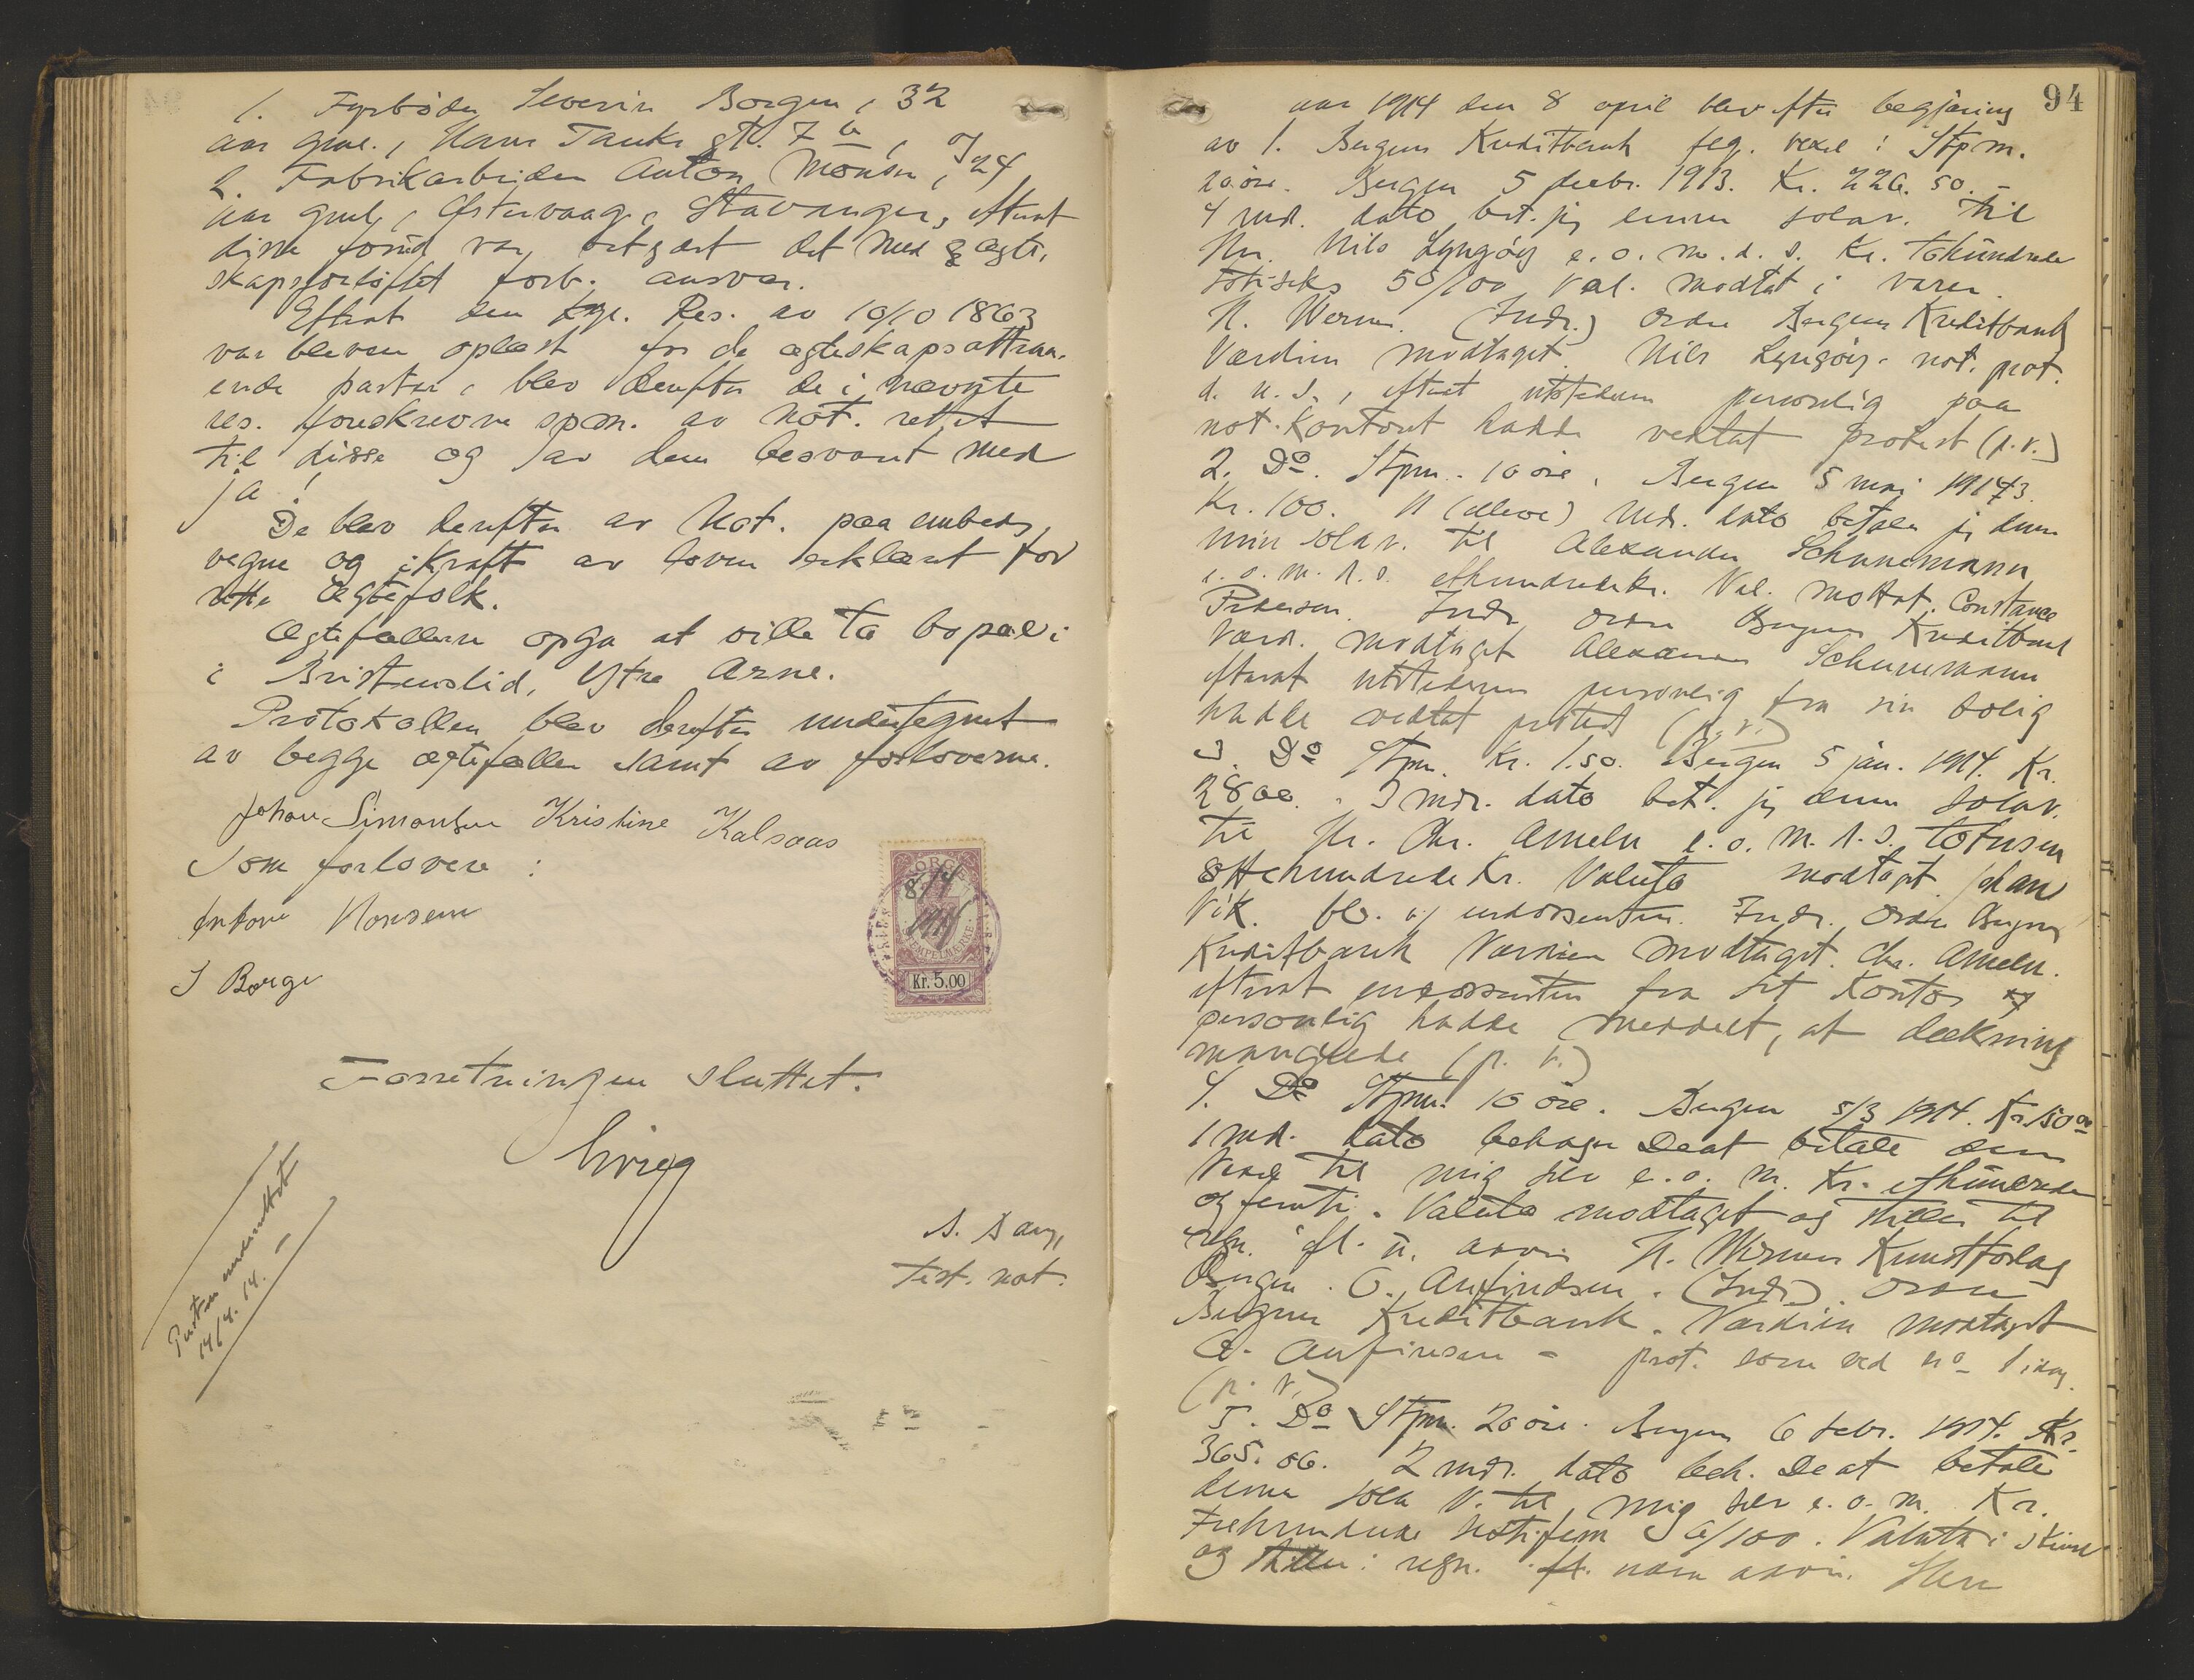 1. Fyrbøder Severin Borgen, 32
aar gml., Hans Tanks gt. 7 b, og
2. Fabrikarbeider Anton Monsen, 24
aar gml, Østervaag, Stavanger, efterat
disse forud var betydet det med ægte-
skapsforløftet forb. ansvar.
Efterat den kgl. Res. av 10/10 1863
var bleven oplæst for de ægteskapsattraa-
ende parter, blev derefter de i nævnte
res. foreskrevne spm. av Not. rettet
til disse og av dem besvaret med
ja!
De blev derefter av Not. paa embeds
vegne og i kraft av loven erklæret for
rette ægtefolk.
Ægtefællerne opga at ville ta bopæl i
i Bristenslid, Ytre Arne.
Protokollen blev derefter undertegnet
av begge ægtefæller samt av forloverne.
Johan Simonsen Kristine Kalsaas
Som forlovere:
Antoni Monsen
S Borge
NORGE
8/4
1914
STEMPELMERKE
Kr. 5.00
Forretningen sluttet.
Test. not.
14/4. 14.
94
aar 1914 den 8 april blev efter begjæring
av 1. Bergens Kreditbank flg. vexel: Stpm.
20 øre. Bergen 5 decbr. 1913. Kr. 226.50.-
4 md. dato bet. jeg denne solav. til
Hr. Nils Lyngøy e.o. m.d.s. Kr. tohundrede
totiseks 50/100 Val. modtat i varer.
N. Werner. (Indr.) Ordre Bergens Kreditbank
Værdien modtaget Nils Lyngøy. not. prot.
d. u. s., efterat utstederen personlig paa
not. Kontoret hadde vedtat protest (p.v.)
2. Do. Stpm. 10 øre. Bergen 5 mai 1913.
Kr. 100. 11 (elleve) Mdr. dato betaler jeg denne
min solav. til Alexander Schunemann
e.o.m.d.s. ethundredekr. Val. mottat. Constance
Pedersen. Indr. Ordre Bergens Kreditbank
Værd. modtaget Alexander Schunemann
efterat utstederen personlig fra sin bolig
hadde vedtat protest (p.v.)
3. Do Stpm. Kr. 1.50. Bergen 5 jan. 1914. Kr.
2800. 3 mdr. dato bet. jeg denne solav.
til Hr. Chr. Ameln e.o.m.d.s. totusen
ottehundrede Kr. Valuta modtaget Johan
Vik. endossenten. Indr. Ordre Bergens
Kreditbank Værdien modtaget. Chr. Ameln.
efterat endossenten fra sit Kontor
personlig hadde meddelt, at dækning
manglede (p.v.)
4. Do Stpm. 10 øre. Bergen 5/3 1914. Kr. 150 00
1 md. dato behager De at betale denne
Vexel til mig selv e.o.m. Kr. ethundrede
og femti. Valuta modtaget og stilles til
regn. ifl. u. advis N. Werner Kunstforlag
Bergen. O. Anfindsen. (Indr.) Ordre
Bergens Kreditbank. Værdien modtaget
O. Anfinsen - prot. som ved no 1 idag.
(p.v.)
5. Do Stpm. 20 øre. Bergen 6 febr. 1914. Kr.
365.06. 2 mdr. dato beh. De at betale
denne sola V. til mig selv e.o.m. Kr.
trehundrede sekstifem 6/100. Valuta i
og stilles i regn. uden advis. Herr